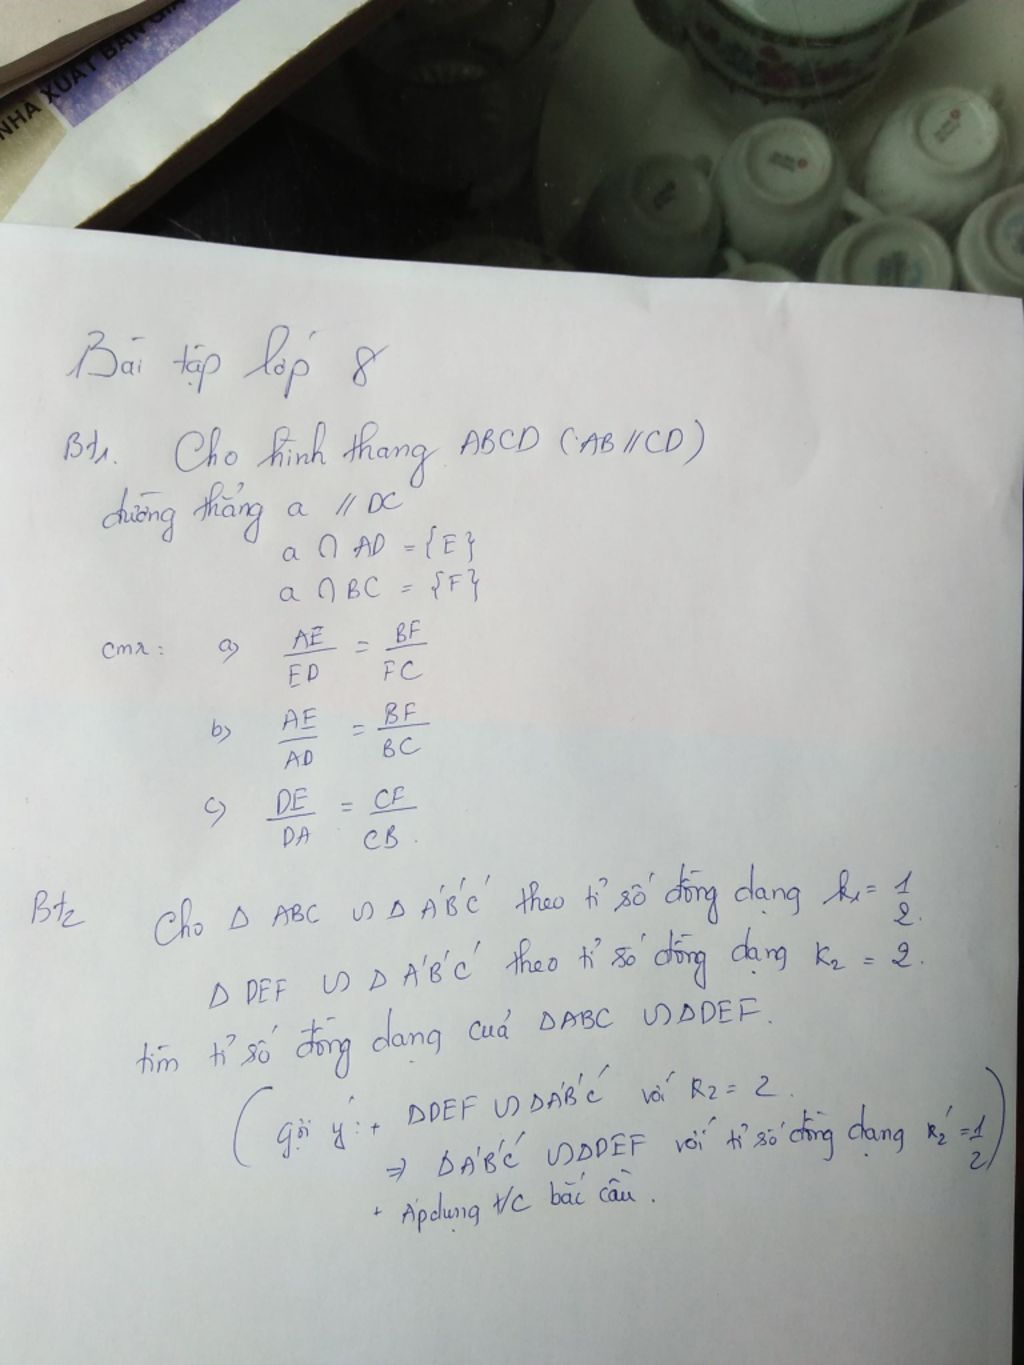 NHÀ XUẤT BẢN GIÁ
Bài tập lớp 8
Bt1. Cho hình thang ABCD (AB // CD)
đường thẳng a // DC
a ∩ AD = {E}
a ∩ BC = {F}
cmr: a) AE/ED = BF/FC
b) AE/AD = BF/BC
c) DE/DA = CF/CB.
Bt2 Cho Δ ABC ᔕ Δ A'B'C' theo tỉ số đồng dạng k1 = 1/2.
Δ DEF ᔕ Δ A'B'C' theo tỉ số đồng dạng K2 = 2.
tìm tỉ số đồng dạng của ΔABC ᔕ ΔDEF.
(gợi ý: + ΔDEF ᔕ ΔA'B'C' với K2 = 2.
⇒ ΔA'B'C' ᔕ ΔDEF với tỉ số đồng dạng K2' = 1/2)
+ Áp dụng t/c bắc cầu.